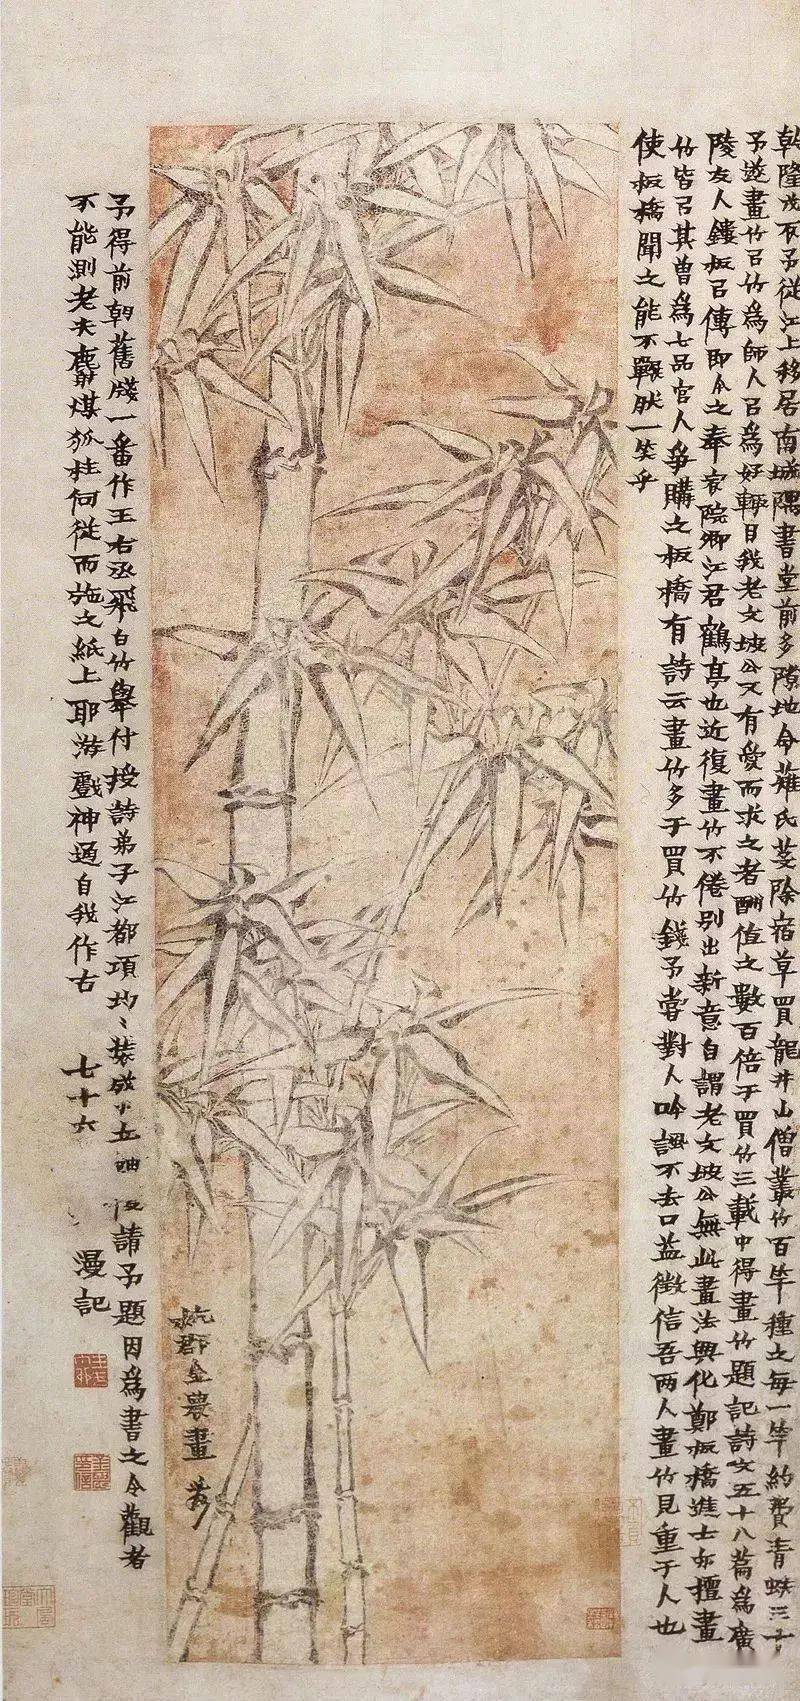 乾隆戊予從江上移居南城隅書堂前多隙地令薙氏芟除宿草買龍井山僧叢竹百竿種之每一竿約費青蚨三十
予遂畫竹㠯竹為師人㠯為好輒目我老文坡公又有愛而求之者酬值之數百倍于買竹三載中得畫竹題記詩文五十八篇為廣
陵友人鏤板㠯傳即今之奉宸院卿江君鶴亭也近復畫竹不倦別出新意自謂老文坡公無此畫法興化鄭板橋進士亦擅畫
竹皆㠯其曾為七品官人爭購之板橋有詩云畫竹多于買竹錢予嘗對人吟諷不去口益徵信吾兩人畫竹見重于人也
使板橋聞之能不囅然一笑乎
杭郡金農畫
予得前朝舊牋一番作王右丞飛白竹舉付授詩弟子江都項均〻裝成小立軸復請予題因為書之令觀者
不能測老夫麝煤狐柱何從而施之紙上耶游戲神通自我作古 七十六 漫記